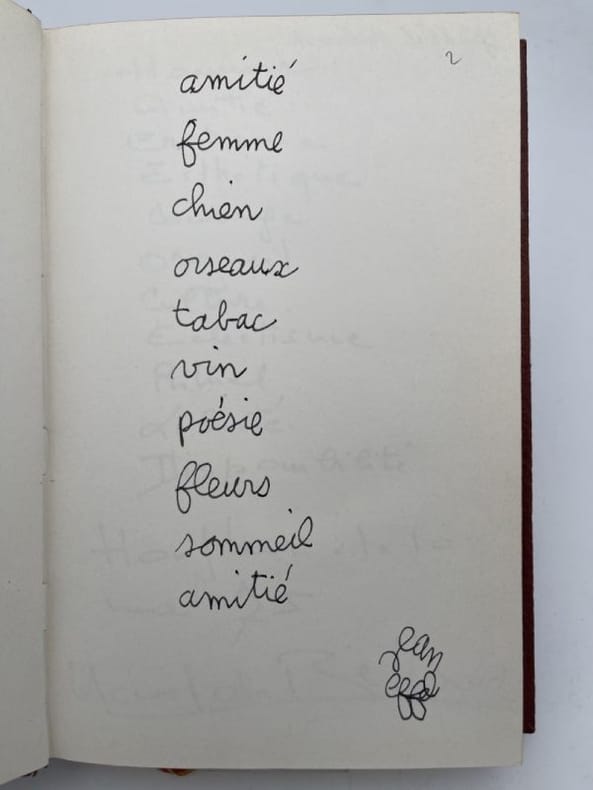 2
amitié
femme
chien
oiseaux
tabac
vin
poésie
fleurs
sommeil
amitié
jean
effel